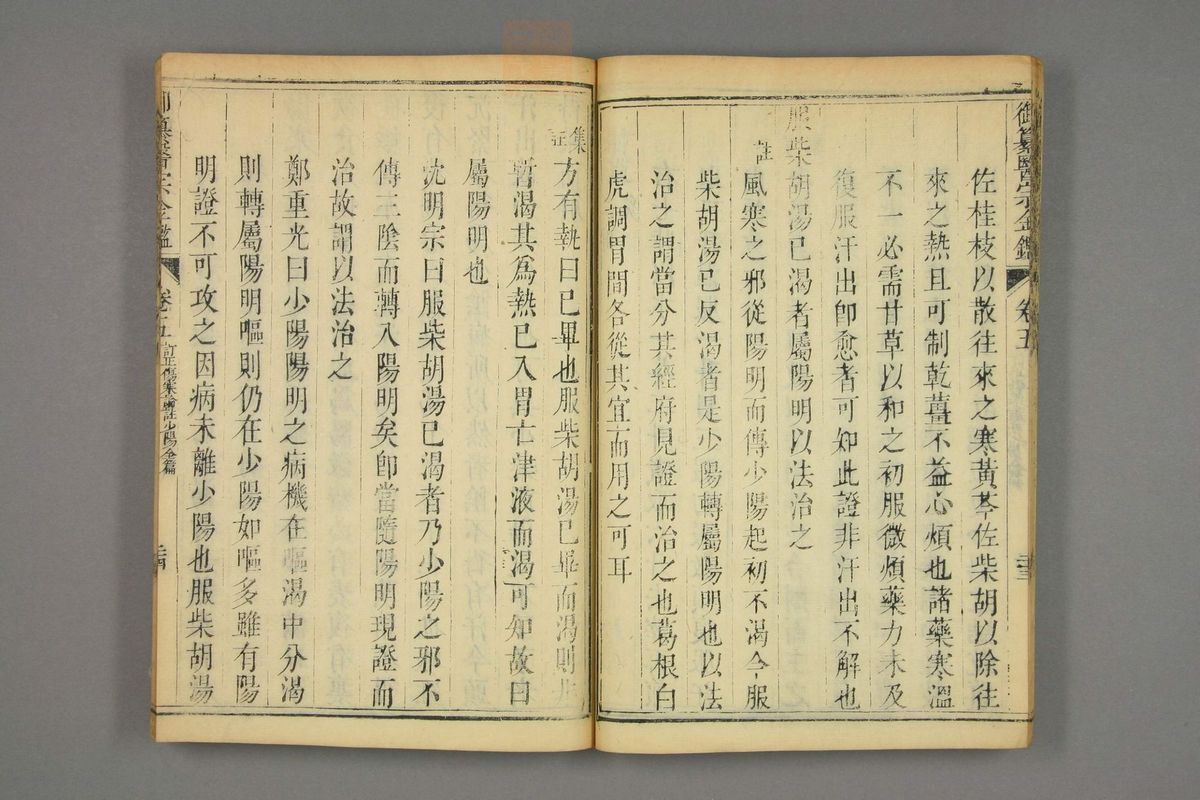 御纂醫宗金鑑 卷五 三三
佐桂枝以散往來之寒黃芩佐柴胡以除往
來之熱且可制乾薑不益心煩也諸藥寒溫
不一必需甘草以和之初服微煩藥力未及
復服汗出卽愈者可知此證非汗出不解也
服柴胡湯已渴者屬陽明以法治之
註風寒之邪從陽明而傳少陽起初不渴今服
柴胡湯已反渴者是少陽轉屬陽明也以法
治之謂當分其經府見證而治之也葛根白
虎調胃間各從其宜而用之可耳
集註方有執曰已畢也服柴胡湯已畢而渴則
暫渴其爲熱已入胃亡津液而渴可知故曰
屬陽明也
沈明宗曰服柴胡湯已渴者乃少陽之邪不
傳三陰而轉入陽明矣卽當隨陽明現證而
治故謂以法治之
鄭重光曰少陽陽明之病機在嘔渴中分渴
則轉屬陽明嘔則仍在少陽如嘔多雖有陽
明證不可攻之因病未離少陽也服柴胡湯
卷五 訂正傷寒論註少陽全篇